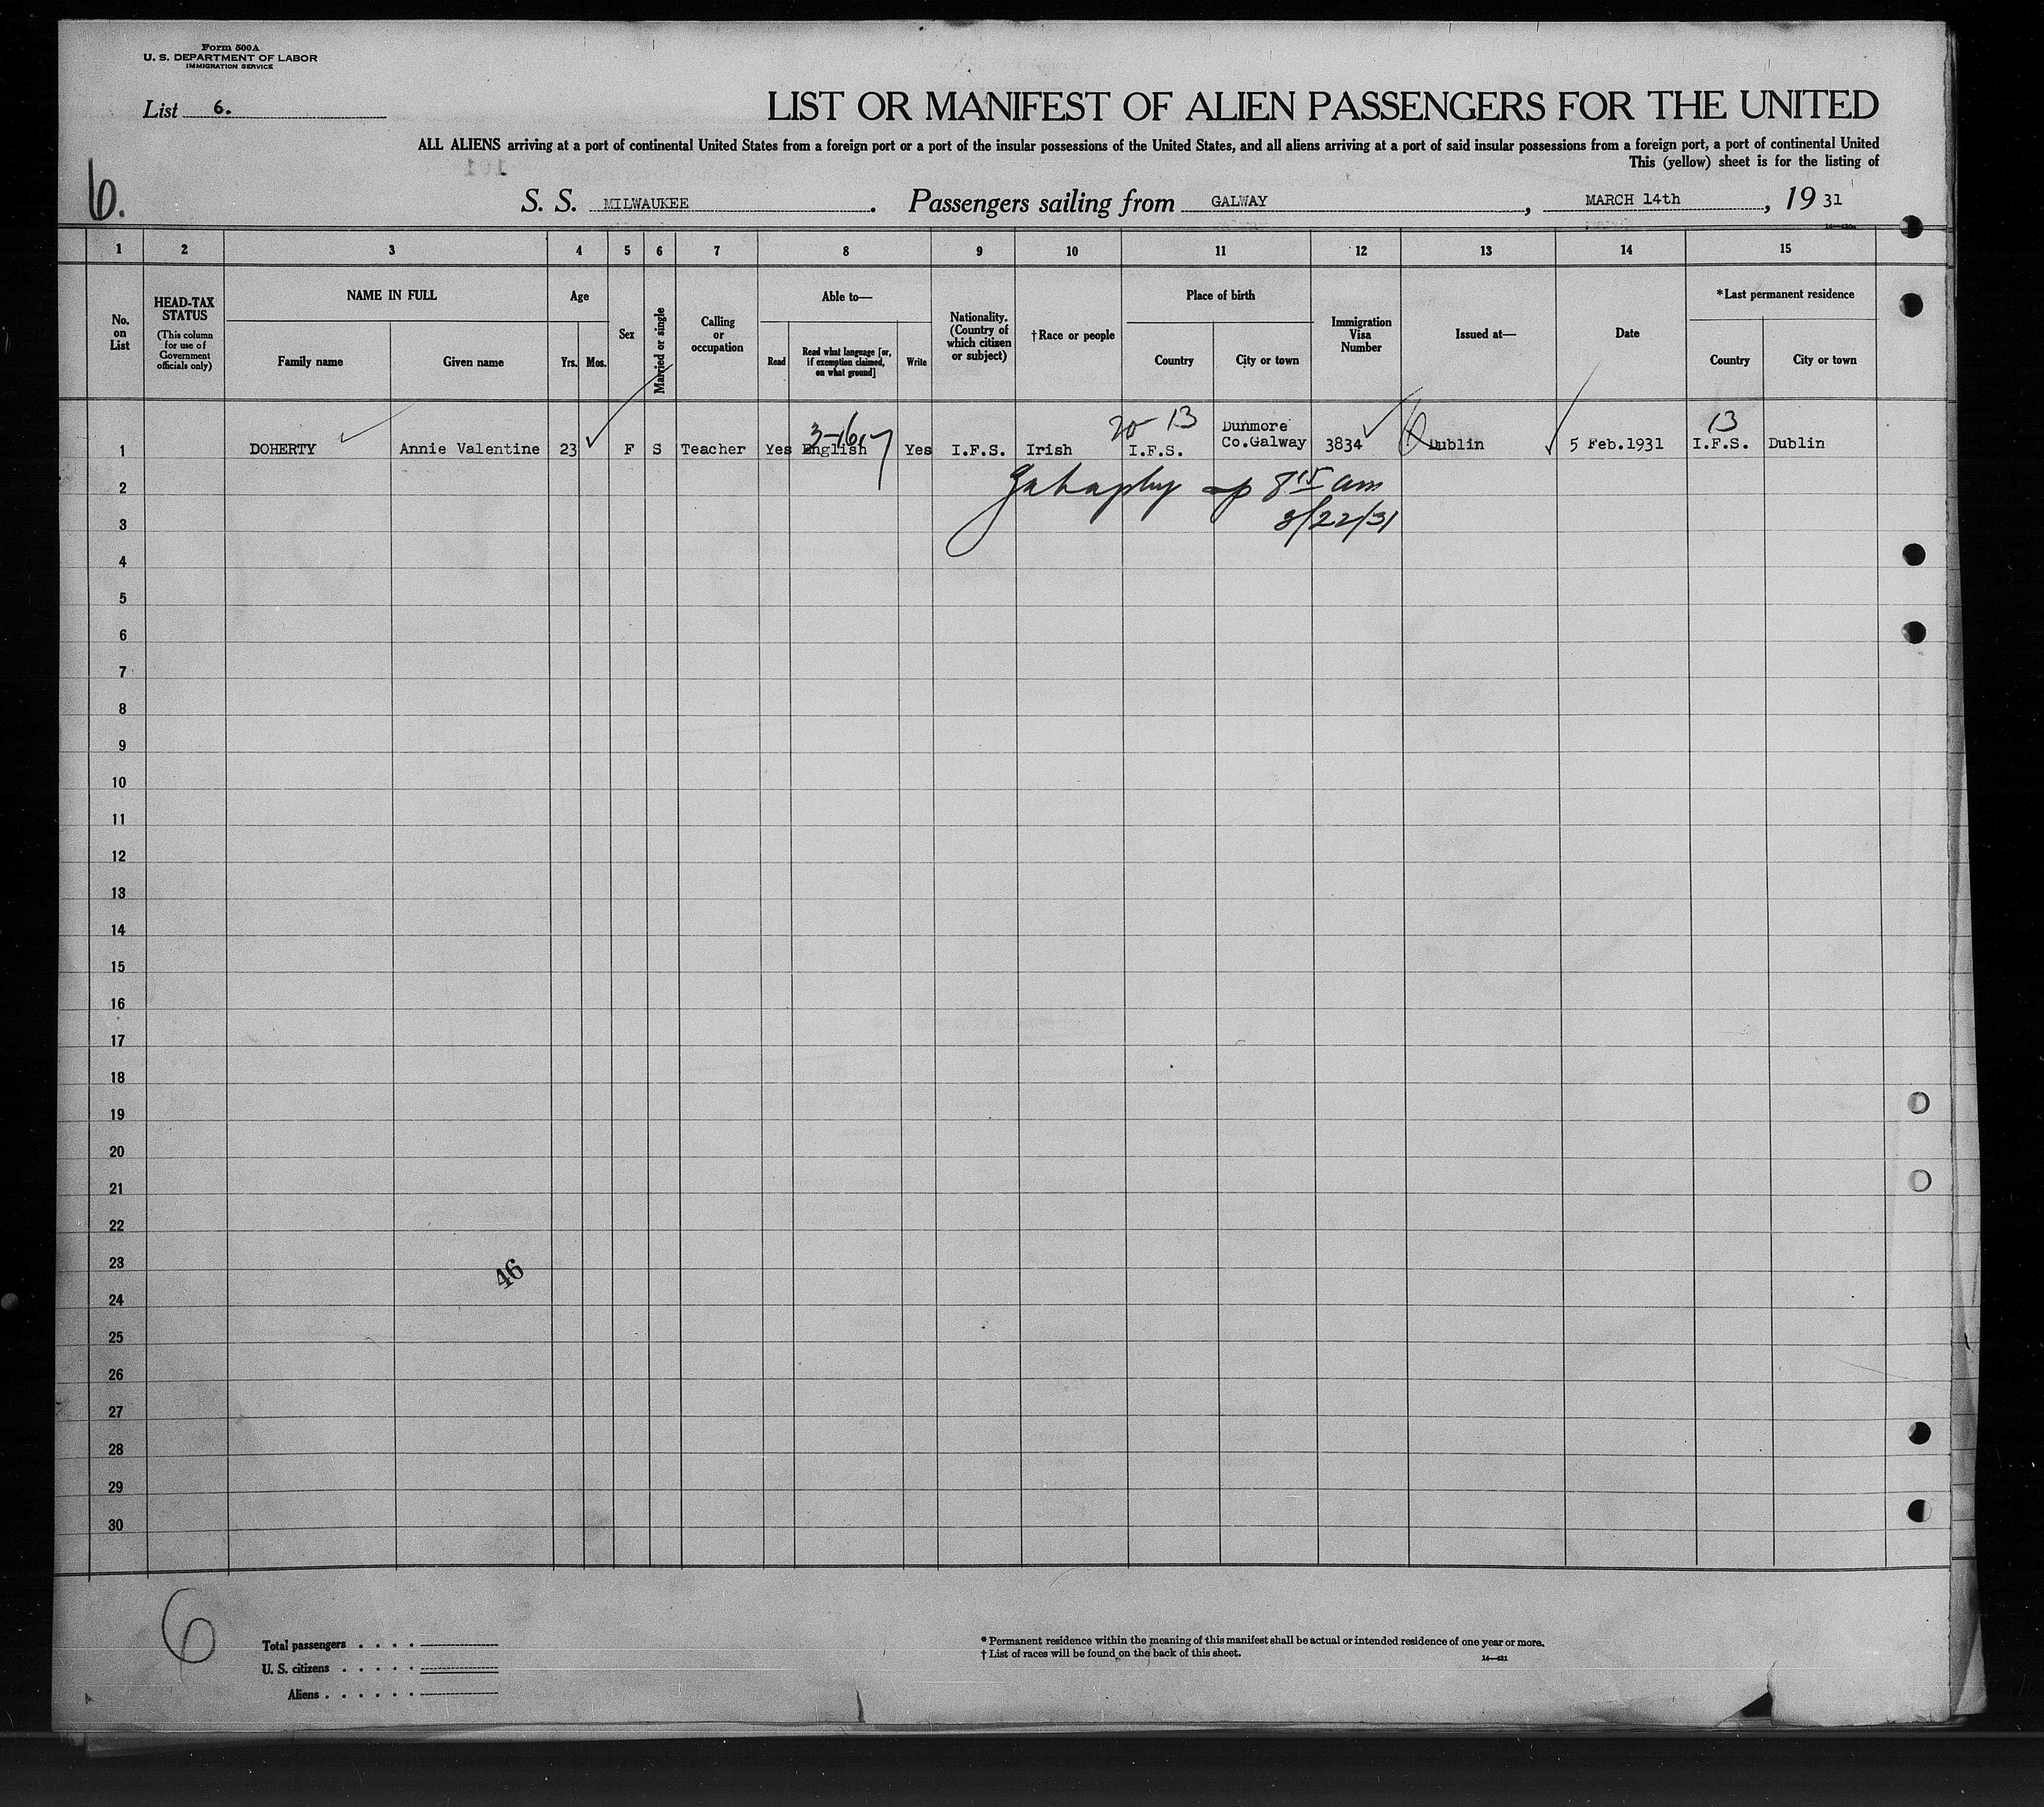 Form 500A
U. S. DEPARTMENT OF LABOR
IMMIGRATION SERVICE
List 6.
LIST OR MANIFEST OF ALIEN PASSENGERS FOR THE UNITED
ALL ALIENS arriving at a port of continental United States from a foreign port or a port of the insular possessions of the United States, and all aliens arriving at a port of said insular possessions from a foreign port, a port of continental United
This (yellow) sheet is for the listing of
6.
S. S. MILWAUKEE . Passengers sailing from GALWAY , MARCH 14th , 19 31
1 2 3 4 5 6 7 8 9 10 11 12 13 14 15
No. on List
HEAD-TAX STATUS
(This column for use of Government officials only)
NAME IN FULL
Family name
Given name
Age
Yrs.
Mos.
Sex
Married or single
Calling or occupation
Able to—
Read
Read what language [or, if exemption claimed, on what ground]
Write
Nationality. (Country of which citizen or subject)
†Race or people
Place of birth
Country
City or town
Immigration Visa Number
Issued at—
Date
*Last permanent residence
Country
City or town
20 13
13
Dunmore
1 DOHERTY Annie Valentine 23 F S Teacher Yes English Yes I.F.S. Irish I.F.S. Co.Galway 3834 Dublin 5 Feb.1931 I.F.S. Dublin
2
8 15 am
3
3/22/31
4
5
6
7
8
9
10
11
12
13
14
15
16
17
18
19
20
21
22
23
46
24
25
26
27
28
29
30
6
Total passengers
U. S. citizens
Aliens
* Permanent residence within the meaning of this manifest shall be actual or intended residence of one year or more.
† List of races will be found on the back of this sheet.
14—431